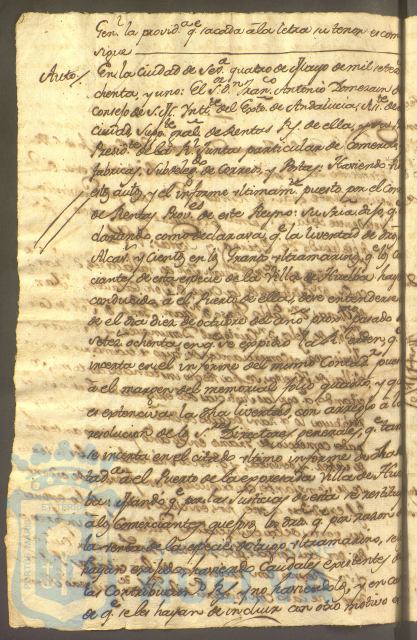 Gen.l la provid.a q.e sacada a la letra su tenor es como
sigue
Auto/ En la Ciudad de Sev.a quatro de Mayo de mil setec
chenta, y uno: El S.or D.n Fran.co Antonio Domezain de
Consejo de S. M. Int.te del Exto. de Andalucia,
ciudad Sup.te gral. de Rentas R.s de ella, y
Presid.te de la R.l Junta particular de Comercio
fabricas, Subdeleg.do de Correos, y Postas: Haviendo
estos autos, y el informe ultimam.te puesto por el Con
de Rentas Prov.es de este Reyno: Su Sria dijo, q.e
clarando, como declarava, q.e la livertad de dros
Alcav.s y Cientos en los Granos ultramarinos, q.e los Co
ciantes de esta especie de la Villa de Huelva hay
conducido a el Puerto de ella, deve entenderse
de el dia diez de octubre del año prox.o pasado
setez.s ochenta, en q.e se expidio la R.l orden, q.e
incerta en el informe del mismo Contad.r puesto
a el margen del memorial folio quarto, y que
es extensiva la dha livertad, con arreglo a la
resolucion de los S.res Directores generales, q.e tam
se incerta en el citado ultimo informe
a el Puerto de la expresada Villa de Huel
ba; Mando q.e por las Justicias de esta se restituyan
a los Comerciantes quejosos, lo dros q.e por razon de
la venta de la especie de trigo ultramarino, se
hayan exigido, haviendo Caudales existentes de
las Contribucion.s R.s, y no haviendolos, y en ca
de q.e se les hayan de incluir con otro motivo en